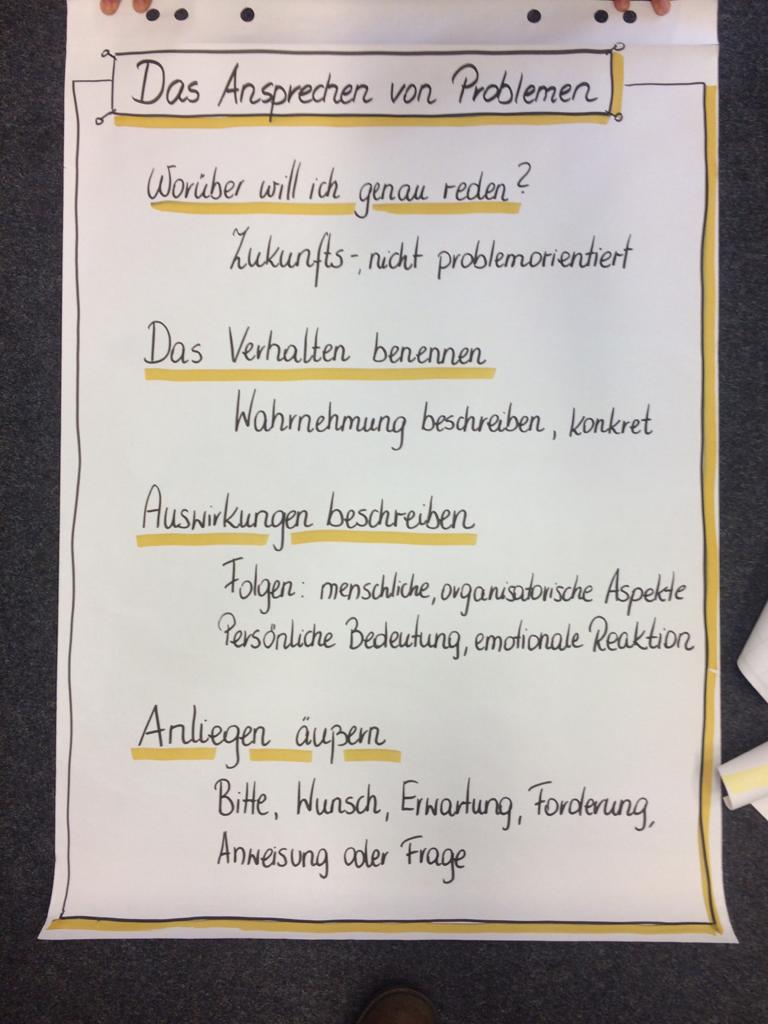 Das Ansprechen von Problemen
Worüber will ich genau reden?
Zukunfts-, nicht problemorientiert
Das Verhalten benennen
Wahrnehmung beschreiben, konkret
Auswirkungen beschreiben
Folgen: menschliche, organisatorische Aspekte
Persönliche Bedeutung, emotionale Reaktion
Anliegen äußern
Bitte, Wunsch, Erwartung, Forderung,
Anweisung oder Frage